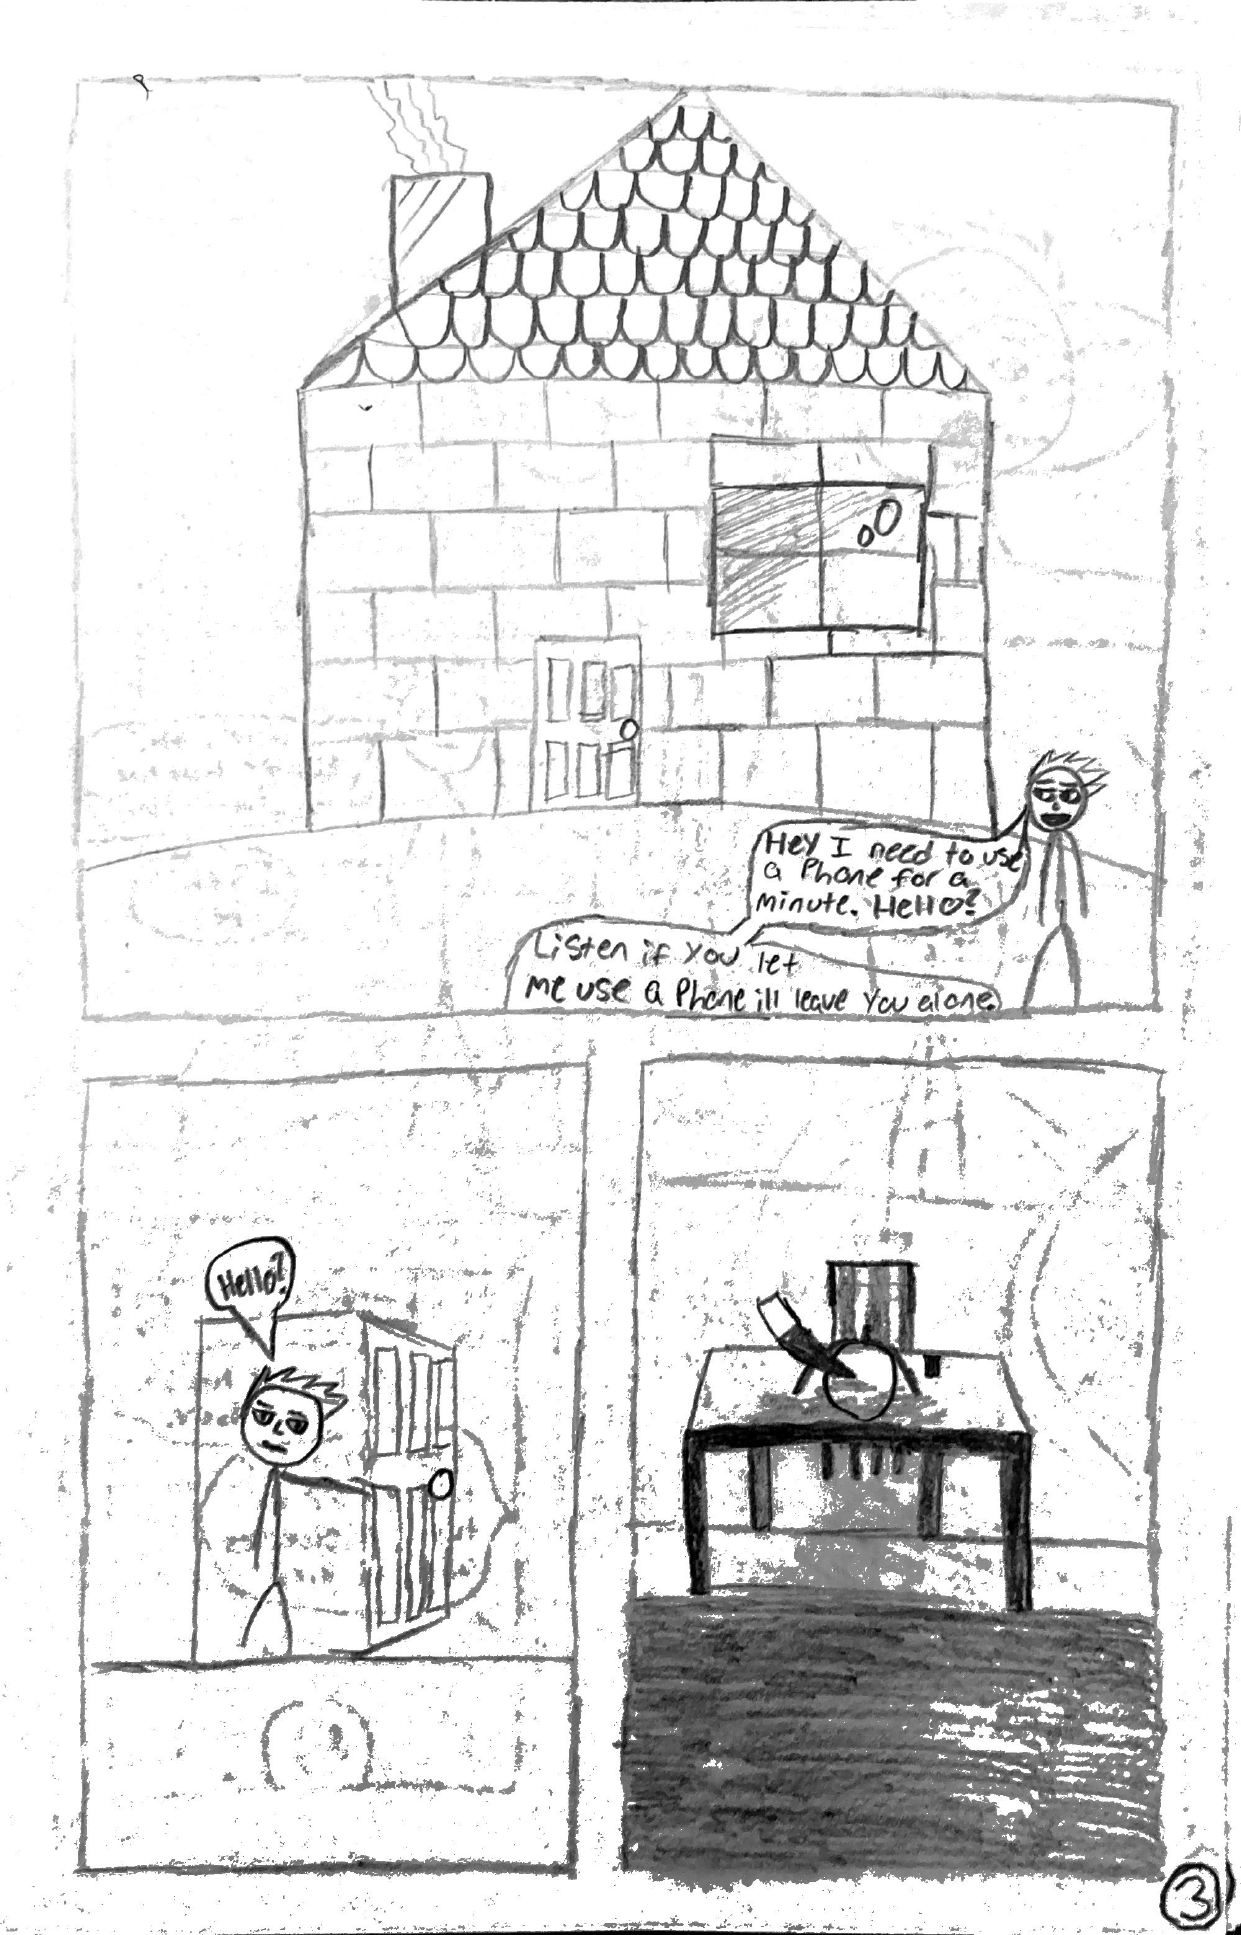 Hey I need to use
a Phone for a
minute. Hello?
Listen if you let
me use a Phone ill leave you alone.
Hello?
3